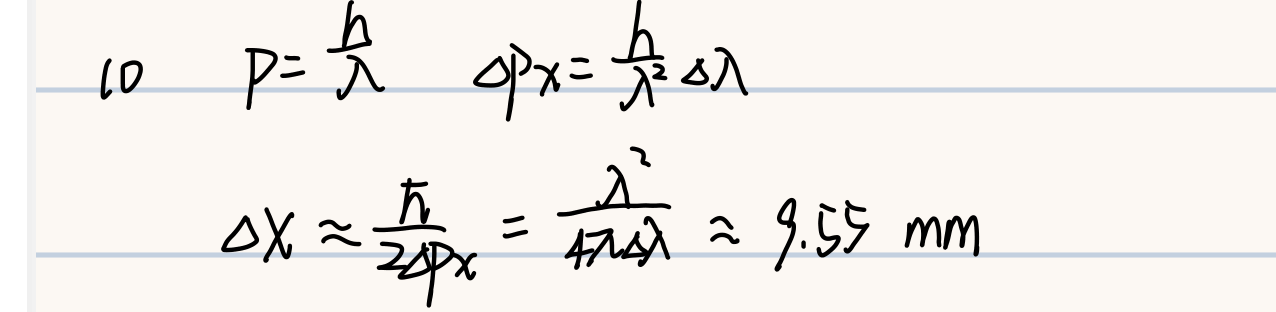 10 p = h/λ Δpx = h/λ² Δλ
Δx ≈ ħ/2Δpx = λ²/4πΔλ ≈ 9.55 mm